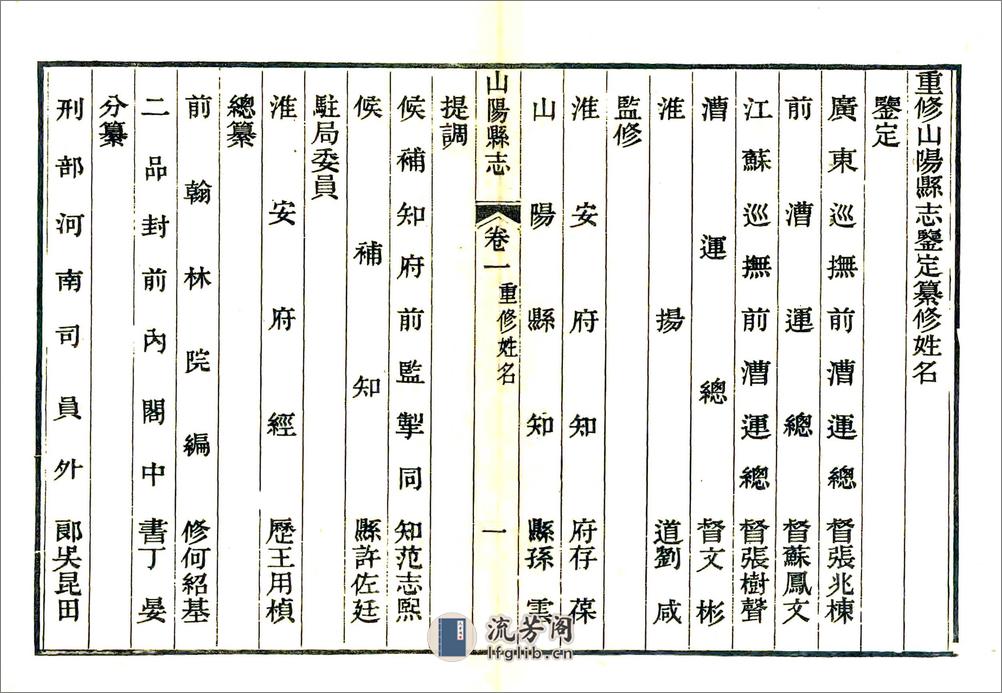 重修山陽縣志鑒定纂修姓名
鑒定
廣東巡撫前漕運總督張兆棟
前漕運總督蘇鳳文
江蘇巡撫前漕運總督張樹聲
漕運總督文彬
淮揚道劉咸
監修
淮安府知府存葆
山陽縣知縣孫雲
山陽縣志 卷一 重修姓名 一
提調
候補知府前監掣同知范志熙
候補知縣許佐廷
駐局委員
淮安府經歷王用楨
總纂
前翰林院編修何紹基
二品封前內閣中書丁晏
分纂
刑部河南司員外郎吳昆田
流芳阁
lfglib.cn